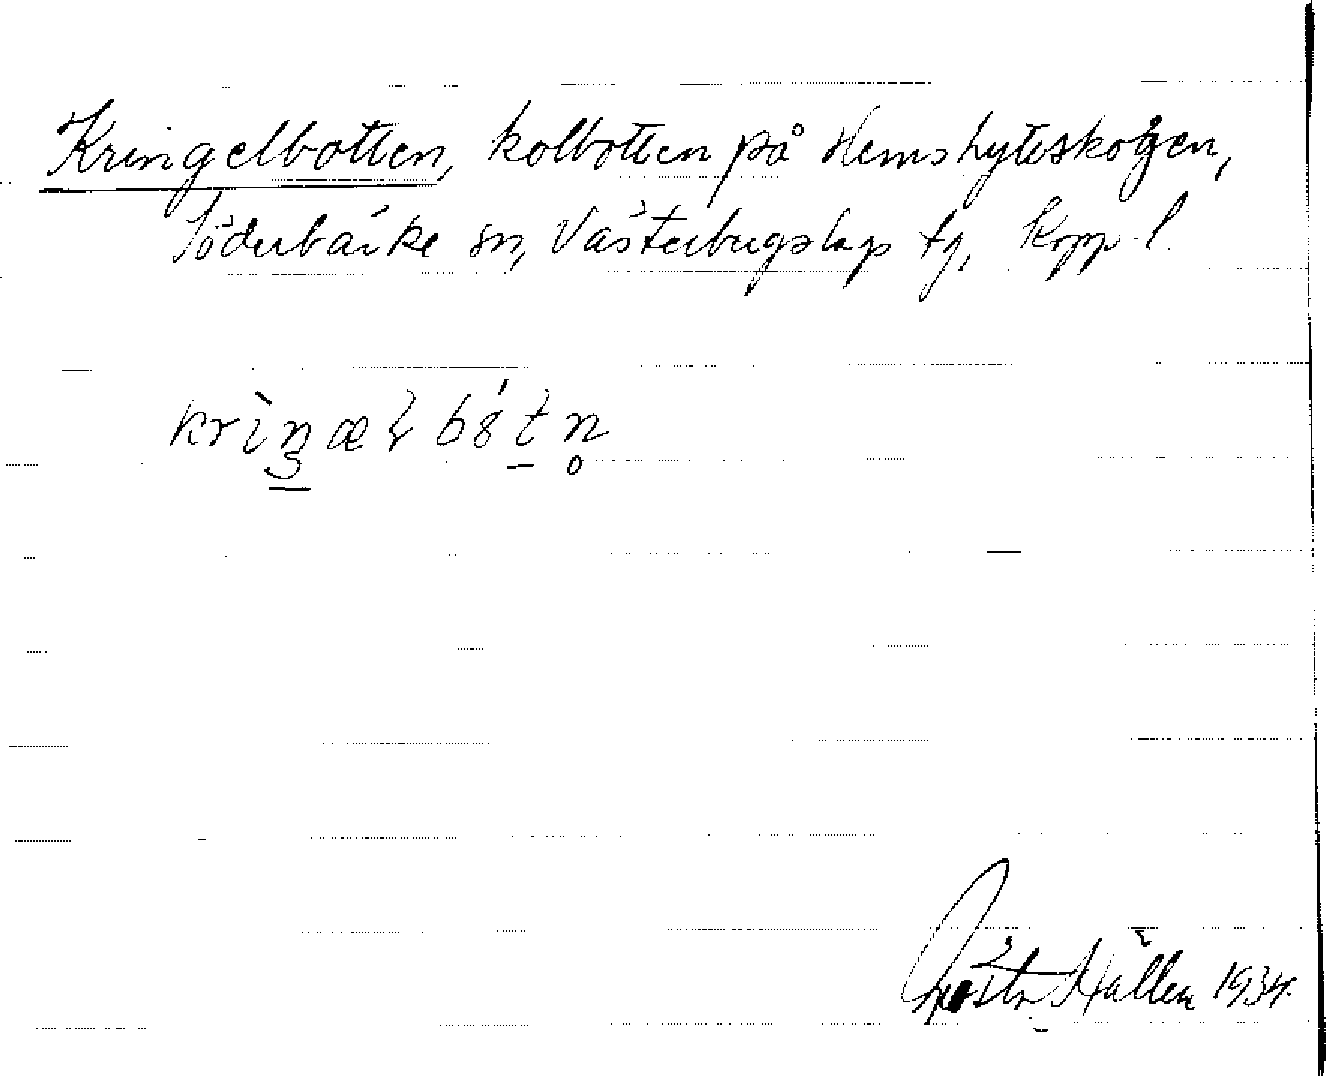 Kringelbotten, kolbotten på Hemshytteskogen,
Söderbärke sn, Västerbergslags tg, Kopp. l.
krìŋæɭ bótn̥
Gösta Hällen 1934.